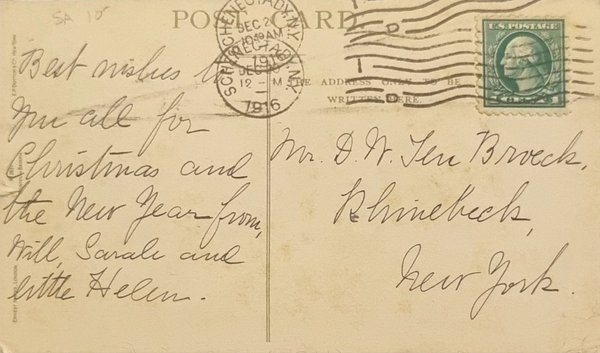 SA 10
POST CARD.
SCHENECTADY, N.Y.
DEC 2
10 30 AM
1916
SCHENECTADY, N.Y.
DEC
12 - M
1916
U.S. POSTAGE
THE ADDRESS ONLY TO BE
WRITTEN HERE.
Best wishes to
you all for
Christmas and
the New Year from,
Will, Sarah and
little Helen.
Mr. D. W. Ten Broeck,
Rhinebeck,
New York.